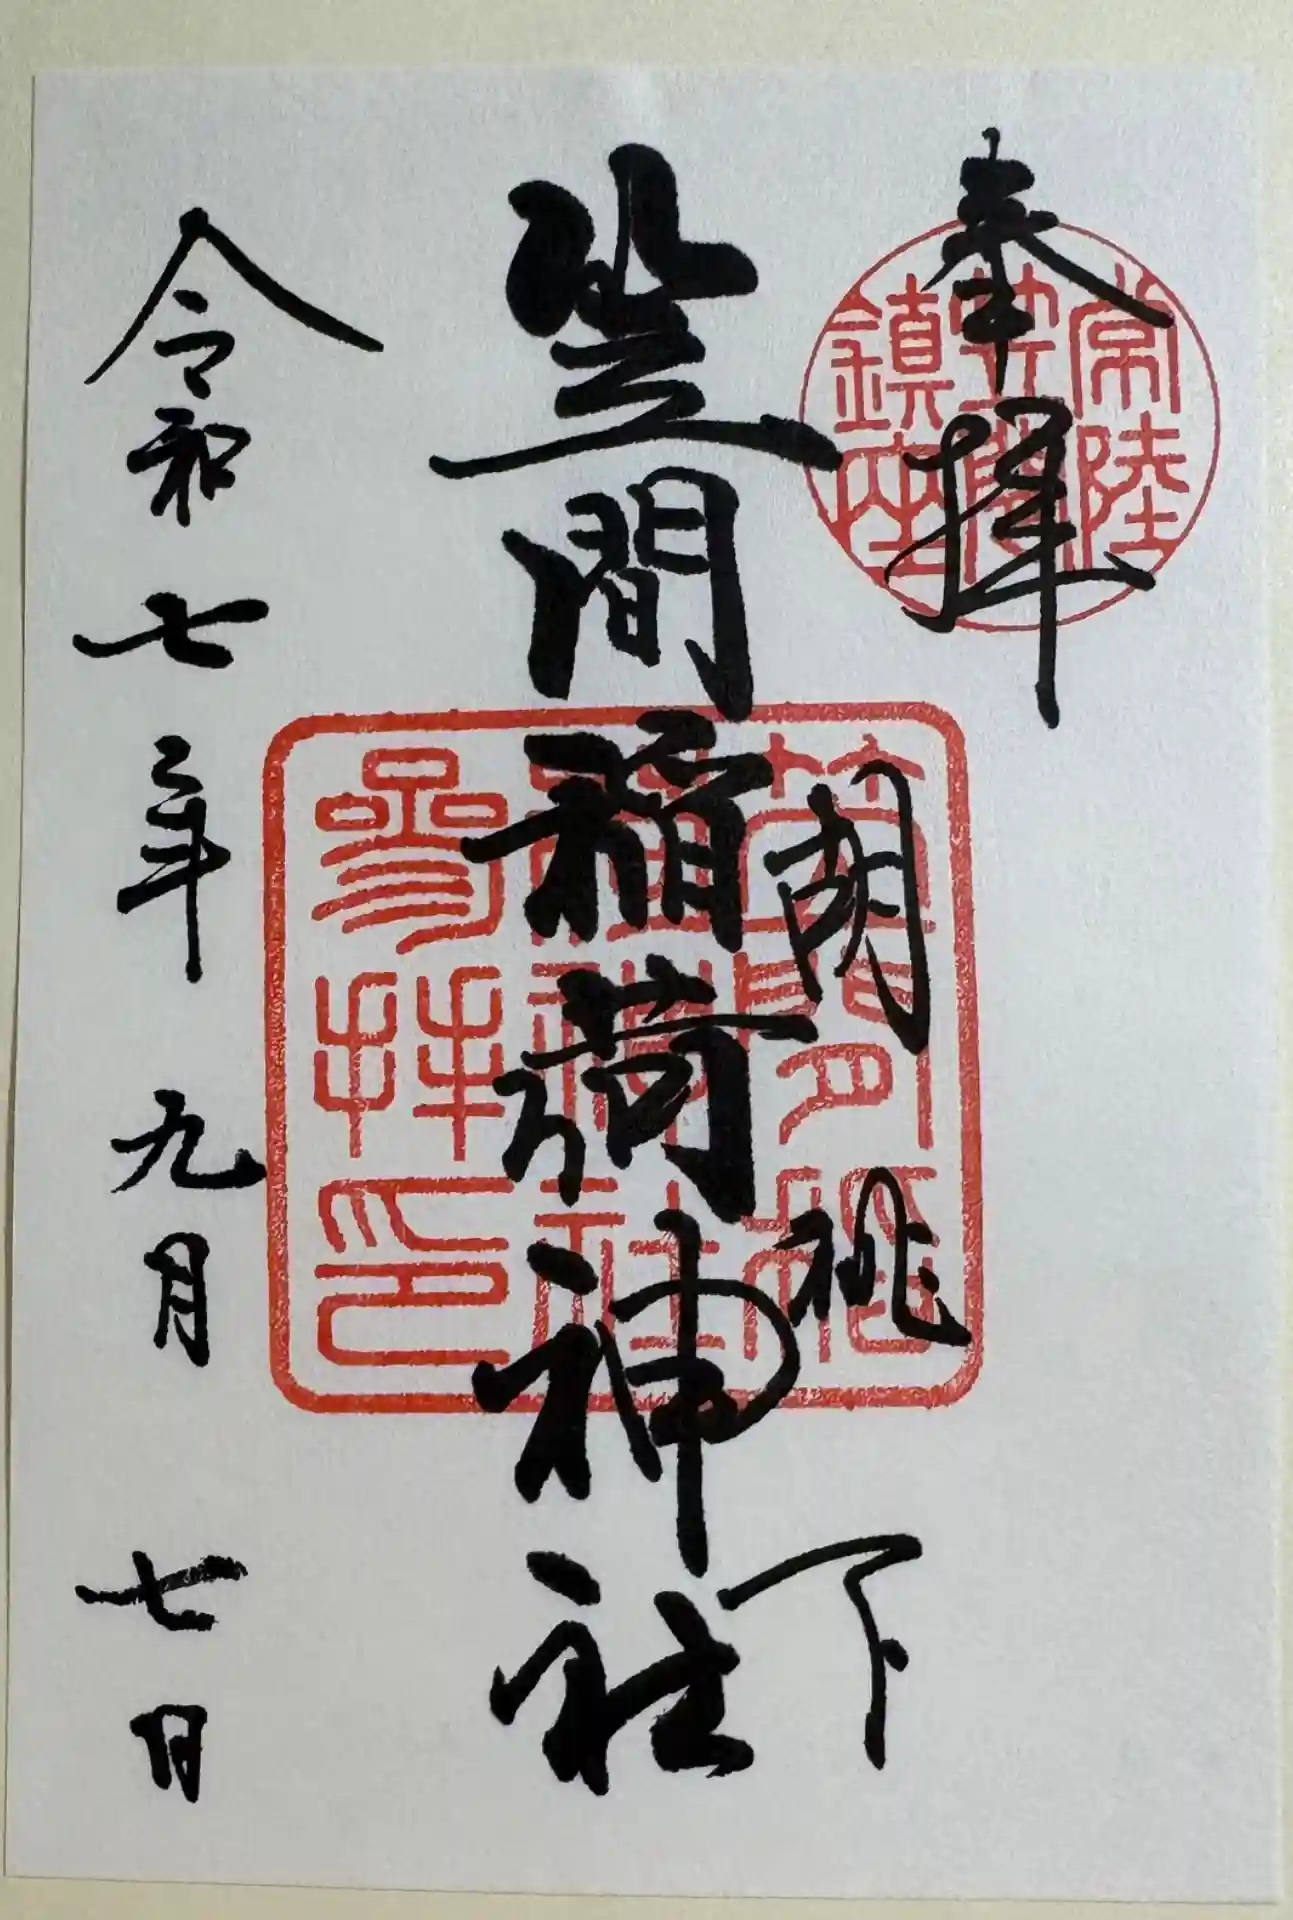 奉拝
常陸
笠間
鎮座
胡桃下
笠間稲荷神社
笠間稲
荷神社
參拝印
令和七年九月七日